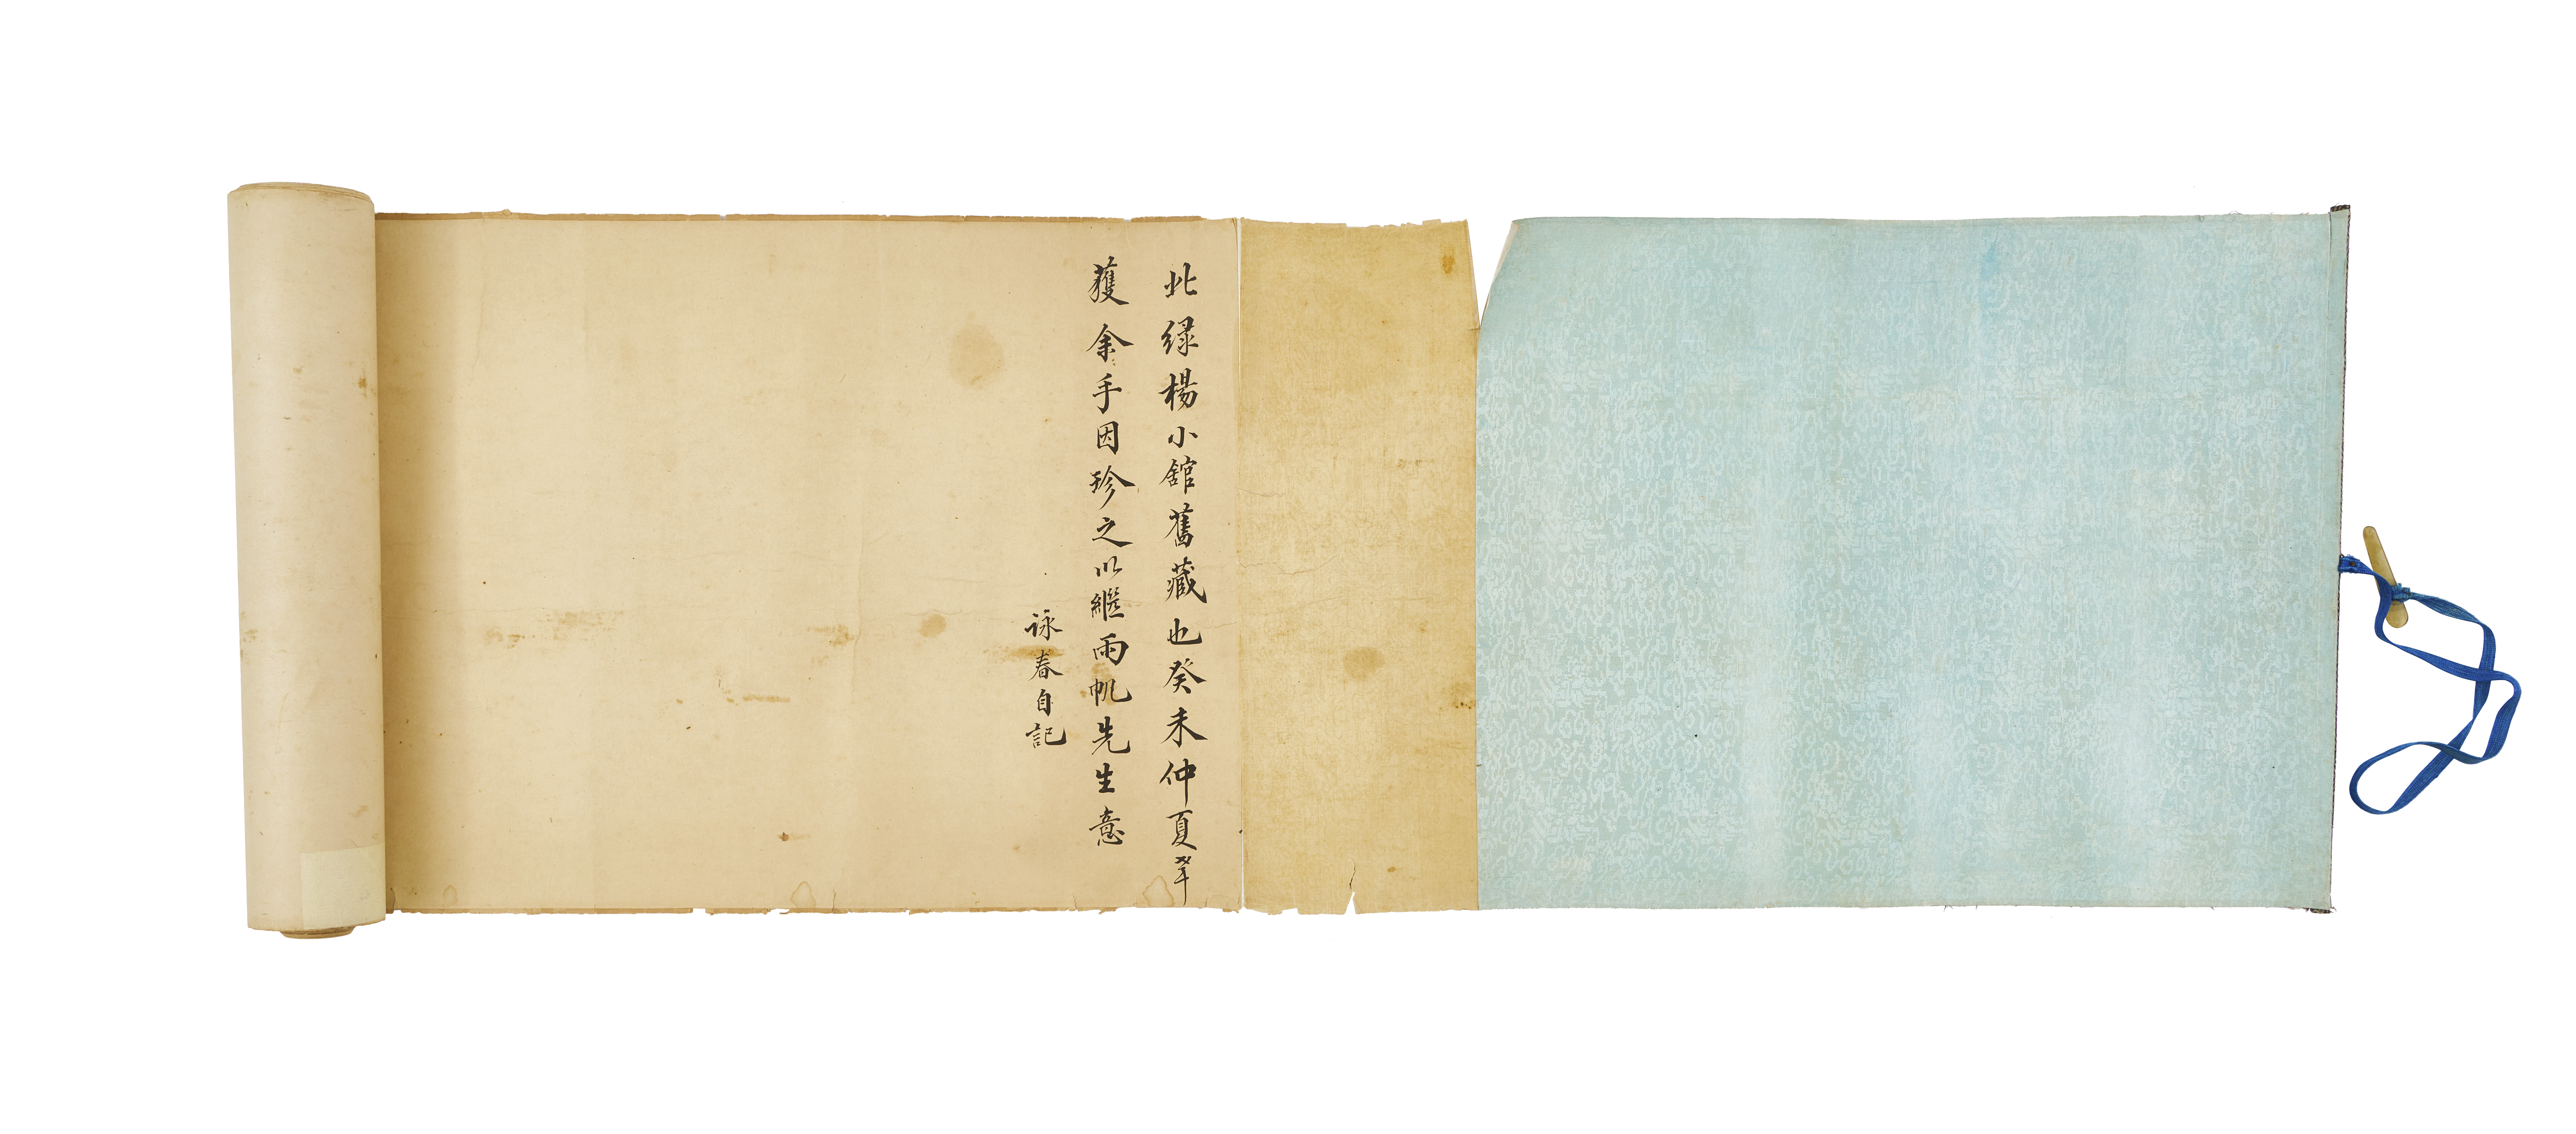 此緑楊小舘舊藏也癸未仲夏卒
獲余手因珍之以繼雨帆先生意
詠春自記